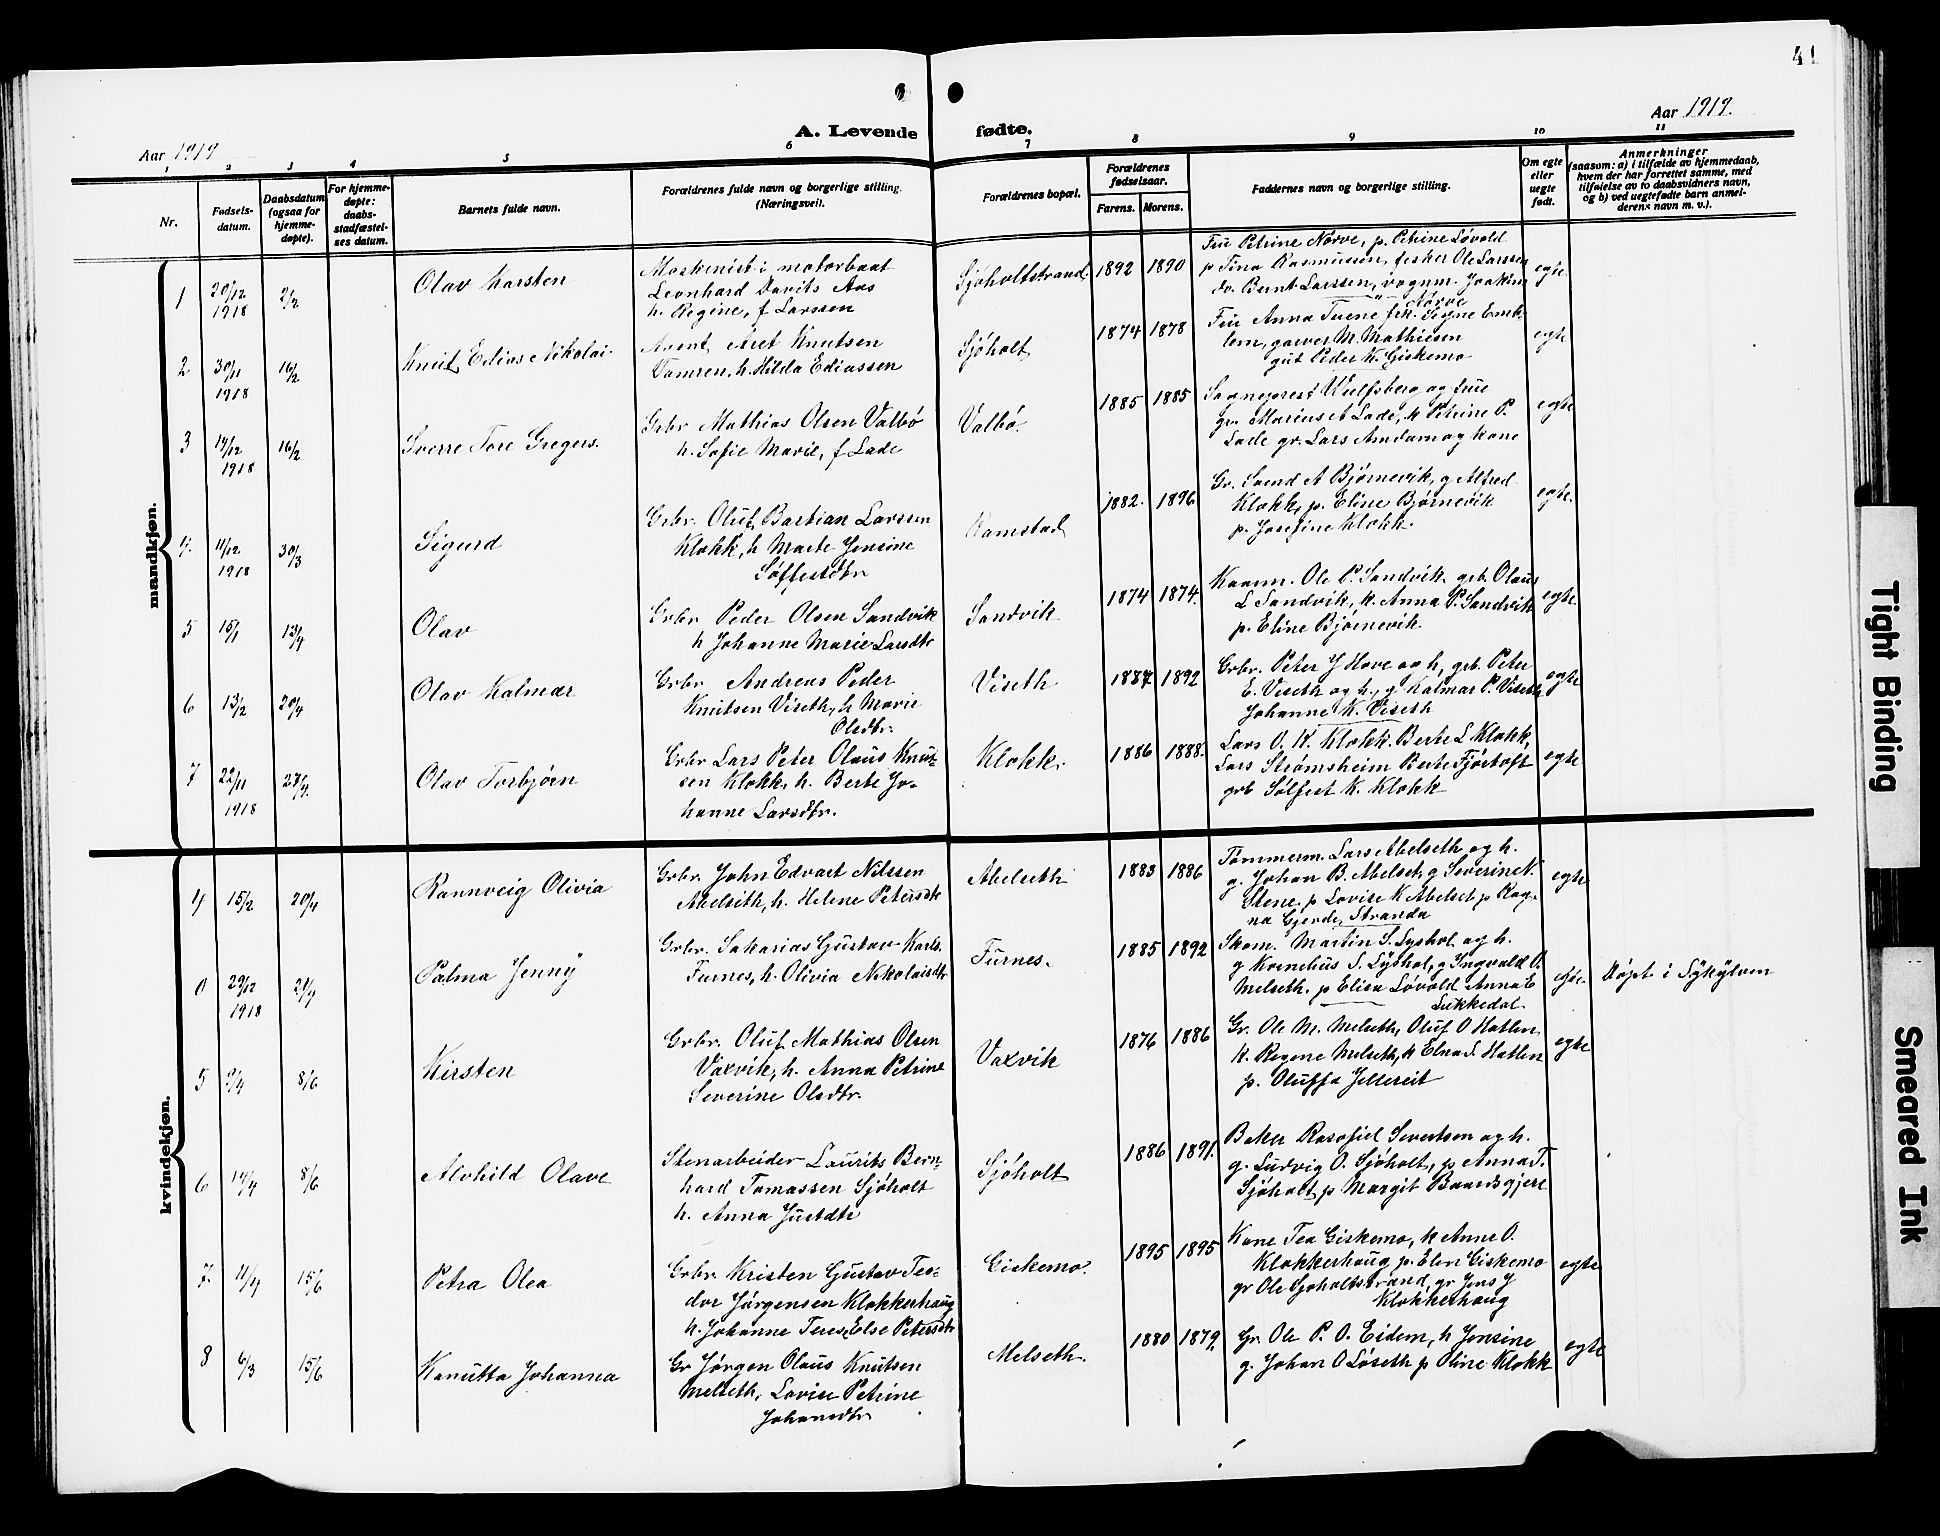 41
Aar 1919
A. Levende fødte.
Aar 1919.
1 2 3 4 5 6 7 8 9 10 11
Nr.
Fødsels-
datum.
Daabsdatum
(ogsaa for
hjemme-
døpte).
For hjemme-
døpte:
daabs-
stadfæstel-
ses datum.
Barnets fulde navn.
Forældrenes fulde navn og borgerlige stilling.
(Næringsvei).
Forældrenes bopæl.
Forældrenes
fødselsaar.
Farens. Morens.
Faddernes navn og borgerlige stilling.
Om egte
eller
uegte
født.
Anmerkninger
(saasom: a) i tilfælde av hjemmedaab,
hvem der har forrettet samme, med
tilføielse av to daabsvidners navn,
og b) ved uegtefødte barn anmel-
derens navn m. v.).
mandkjøn.
1 20/12 1918 2/2 Olav Karsten
Maskinist i motorbaat
Leonhard Davits Aas
h. Regine, f Larssen
Sjøholtstrand 1892 1890
Fru Petrine Norve, p. Petrine Løvold
p Tina Rasmussen, fisker Ole Larssen
dr. Bernt Larssen, vognm. Joakim
Norve
egte
2 30/11 1918 16/2 Knut Edias Nikolai.
Agent Aret Knutsen
Tomren, h. Hilda Ediassen
Sjøholt 1874 1878
Fru Anna Tuene frk. Signe Emb-
lem, garver M. Mathiesen
gut Peder K. Giskemo
egte
3 17/12 1918 16/2 Sverre Tore Gregers.
Grbr Mathias Olsen Valbø
h. Sofie Marie, f Lade
Valbø. 1885 1885
Sogneprest Wulfsberg og frue
gr. Marius A Lade, k Petrine P.
Lade gr. Lars Amdam og kone
egte
4. 11/12 1918 30/3 Sigurd
Grbr. Oluf Bastian Larssen
Klokk, h Marte Jensine
Sølfestdtr
Ramstad 1882. 1896
Gr. Svend A Bjørnevik, g Alfred
Klokk, p. Eline Bjørnevik
p. Josefine Klokk.
egte.
5 15/1 13/4 Olav
Grbr Peder Olsen Sandvik
h Johanne Marie Larsdtr
Sandvik 1874 1874.
Kaarm. Ole P. Sandvik. grb. Olaus
L Sandvik, k. Anna P. Sandvik
p. Eline Bjørnevik
egte.
6 13/2 20/4 Olav Kalmar
Grbr Andreas Peder
Knutsen Viseth, h Marie
Olsdtr.
Viseth 1887 1892
Grbr. Peter J Hove og h, grb. Peter
E. Viseth og h., g Kalmar P. Viseth
Johanne K. Viseth
egte
7 22/11 1918 27/4. Olav Torbjørn
Grbr Lars Peter Olaus Knut-
sen Klokk, h. Berte Jo-
hanne Larsdtr.
Klokk. 1886 1888.
Lars O. K. Klokk. Berte L Klokk,
Lars Strømsheim Berte Fjørtoft
grb Sølfest K. Klokk
egte
kvindekjøn.
4 15/2 20/4 Rannveig Olivia
Grbr. John Edvart Nilssen
Abelseth, h. Helene Petersdtr
Abelseth 1883 1886
Tømmerm. Lars Abelseth og h.
g. Johan B. Abelset, g Severin N.
Stene, p Lovise K Abelset p Rag-
na Gjerde, Stranda
egte
0 29/12 1918 21/4 Palma Jenny
Grbr. Sakarias Gustav Karls.
Furnes, h. Olivia Nikolaisdtr
Furnes. 1885 1892
Skom. Martin S. Lyshol og h.
g Kornelius S. Lyshol, g Ingvald O.
Melseth. p Elisa Løvold Anna E
Lukkedal
egte. Døpt i Sykylven
5 9/4 8/6 Kirsten
Grbr. Oluf Mathias Olsen
Vaxvik, h. Anna Petrine
Severine Olsdtr.
Vaxvik 1876 1886
Gr. Ole M. Melseth, Oluf O Hatlen
k. Regine Melseth, k Elna S. Hatlen
p. Oluffa Jellereit
egte
6 14/4 8/6 Alvhild Olave
Stenarbeider Laurits Bern-
hard Tomassen Sjøholt
h. Anna Justdtr
Sjøholt 1886 1891.
Baker Rasofiel Sivertsen og h.
g. Ludvig O. Sjøholt, p Anna T.
Sjøholt p Margit Baardsgjere
7. 11/4 15/6 Petra Olea
Grbr. Kristen Gustav Teo-
dor Jørgensen Klokkerhaug
h. Johanne Teres. Else Petersdtr
Giskemo. 1895 1895
Kone Tea Giskemo, k Anne O.
Klokkerhaug, p. Elen Giskemo
gr Ole Sjøholtstrand, gr Jens J
Klokkerhaug
egte
8 6/3 15/6 Kanutta Johanna
Gr Jørgen Olaus Knutsen
Melseth, Lovise Petrine
Johansdtr
Melseth. 1880 1879.
Gr. Ole P. O. Eidem, h Jensine
g. Johan O Løseth p Oline Klokk
egte
Tight Binding
Smeared Ink